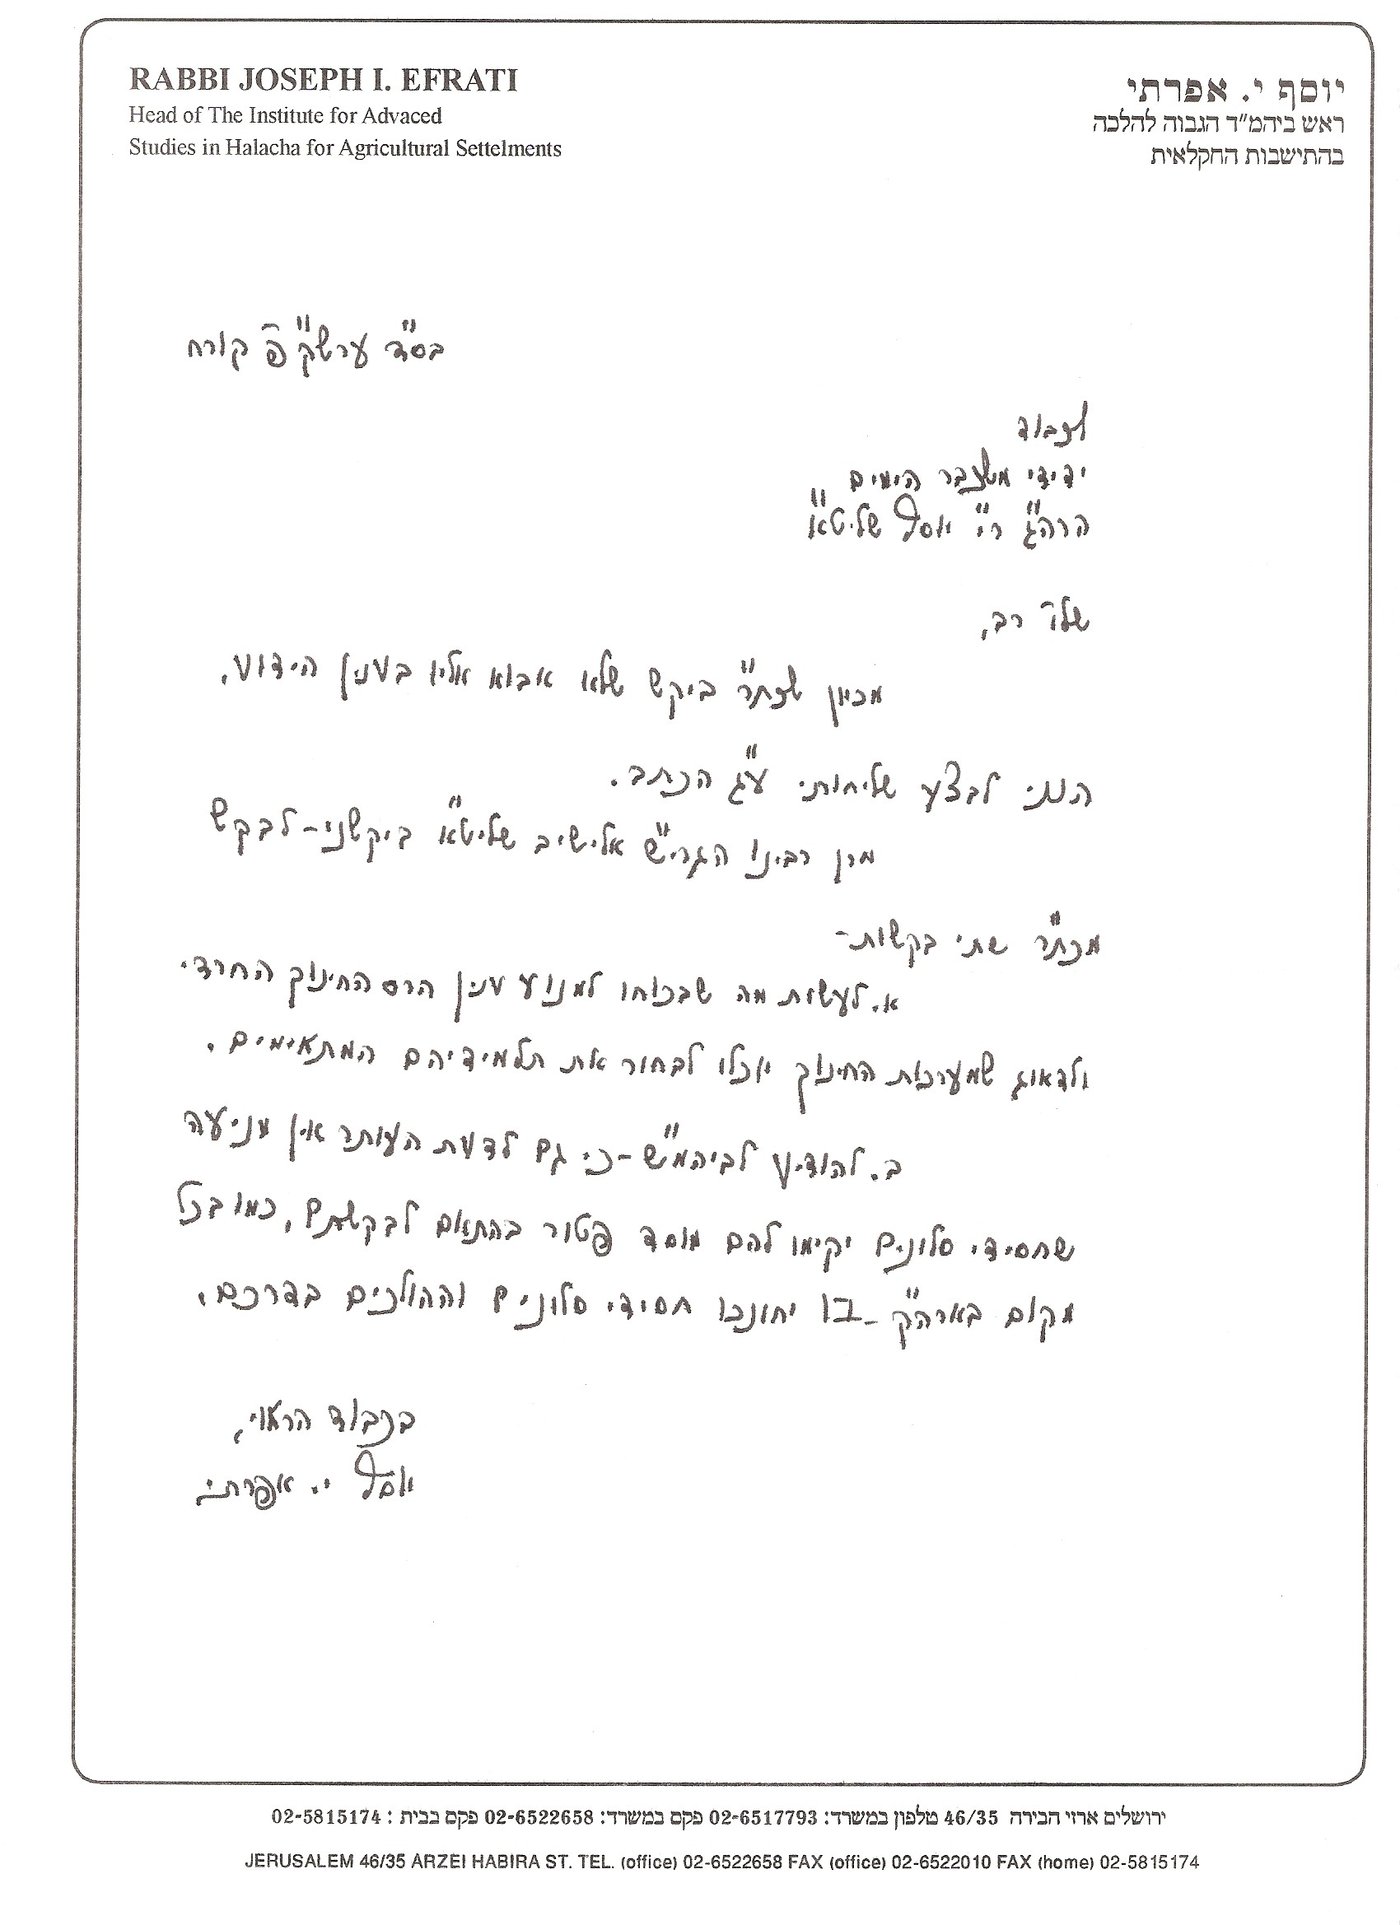 RABBI JOSEPH I. EFRATI
Head of The Institute for Advaced
Studies in Halacha for Agricultural Settelments
יוסף י. אפרתי
ראש ביהמ"ד הגבוה להלכה
בהתישבות החקלאית
בס"ד ערשק"פ קורח
לכבוד
ידידי משכבר הימים
הרה"ג ר"י יוסף שליט"א
שלו' רב,
מכיון שכת"ר ביקש שלא אבוא אליו בענין הידוע,
הנני לבצע שליחותי ע"ג הכתב.
מרן רבינו הגרי"ש אלישיב שליט"א ביקשני - לבקש
מכת"ר שתי בקשות-
א. לעשות מה שבכוחו למנוע ענין הרס החינוך החרדי
ולדאוג שמערכות החינוך יוכלו לבחור את תלמידיהם המתאימים.
ב. להודיע לביהמ"ש - כי גם לדעת העותר אין מניעה
שחסידי סלונים יקימו להם מוסד פטור בהתאם לבקשתם, כמו בכל
מקום בארה"ק - בו יחונכו חסידי סלונים וההולכים בדרכם.
בכבוד הראוי,
יוסף י. אפרתי
ירושלים ארזי הבירה 46/35 טלפון במשרד: 02-6517793 פקס במשרד: 02-6522658 פקס בבית : 02-5815174
JERUSALEM 46/35 ARZEI HABIRA ST. TEL. (office) 02-6522658 FAX (office) 02-6522010 FAX (home) 02-5815174